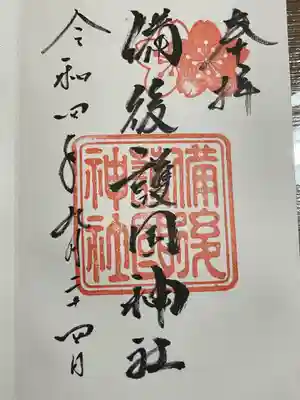 奉拝
備後護国神社
備後
護国
神社
令和四年九月二十四日